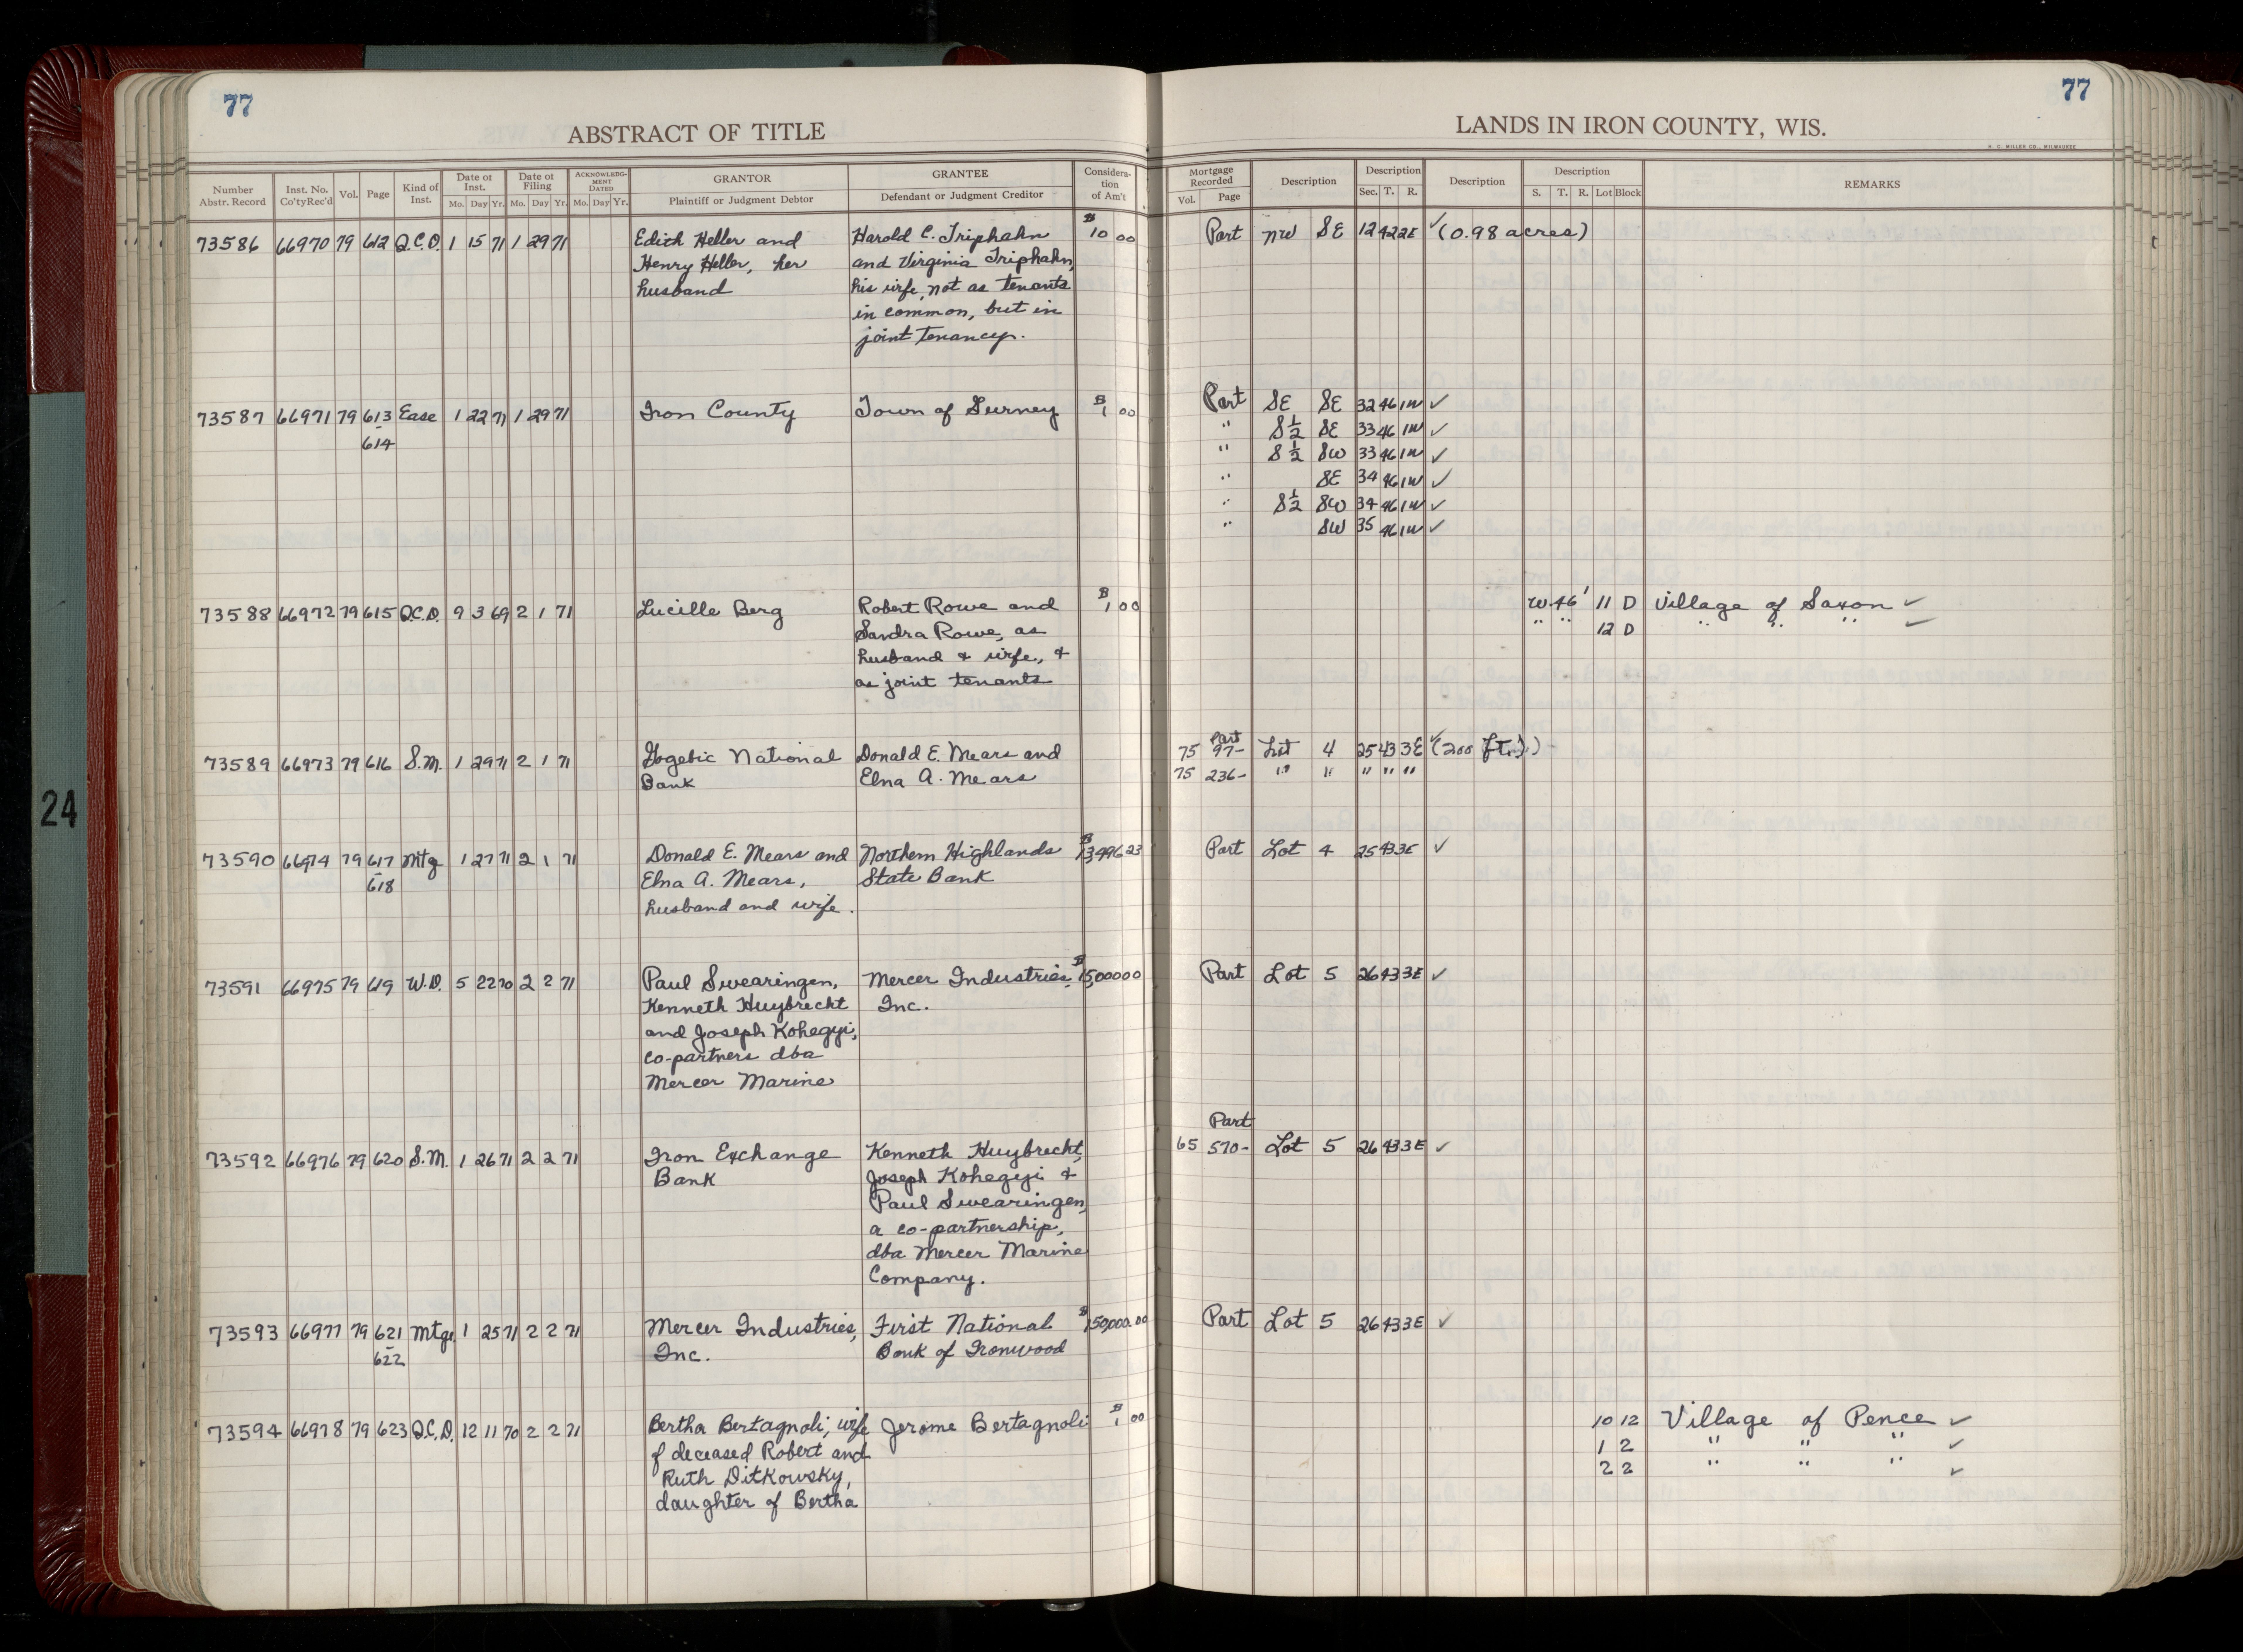 77
77
ABSTRACT OF TITLE
LANDS IN IRON COUNTY, WIS.
H. C. MILLER CO., MILWAUKEE
Number Abstr. Record | Inst. No. Co'ty Rec'd | Vol. | Page | Kind of Inst. | Date of Inst. Mo. Day Yr. | Date of Filing Mo. Day Yr. | ACKNOWLEDGMENT DATED Mo. Day Yr. | GRANTOR Plaintiff or Judgment Debtor | GRANTEE Defendant or Judgment Creditor | Consideration of Am't | Mortgage Recorded Vol. Page | Description | Description Sec. T. R. | Description | Description S. T. R. Lot Block | REMARKS
73586 66970 79 612 Q.C.D. 1 15 71 1 29 71 Edith Heller and Harold C. Triphahn $10 00 Part NW SE 12 42 2E ✓ (0.98 acres)
Henry Heller, her and Virginia Triphahn,
husband his wife, not as tenants
in common, but in
joint tenancy.
73587 66971 79 613 Ease 1 22 71 1 29 71 Iron County Town of Gurney $1 00 Part SE SE 32 46 1W ✓
- 614 " S½ SE 33 46 1W ✓
" S½ SW 33 46 1W ✓
" SE 34 46 1W ✓
" S½ SW 34 46 1W ✓
" SW 35 46 1W ✓
73588 66972 79 615 Q.C.D. 9 3 69 2 1 71 Lucille Berg Robert Rowe and $1 00 W. 46' 11 D Village of Saxon ✓
Sandra Rowe, as " " 12 D " " " ✓
husband & wife, &
as joint tenants
73589 66973 79 616 S.M. 1 29 71 2 1 71 Gogebic National Donald E. Mears and 75 Part 97- Lot 4 25 43 3E ✓ (200 ft.)
Bank Elna A. Mears 75 236- " " " " "
73590 66974 79 617 Mtg 1 27 71 2 1 71 Donald E. Mears and Northern Highlands $13,496 23 Part Lot 4 25 43 3E ✓
- 618 Elna A. Mears, State Bank
husband and wife.
73591 66975 79 619 W.D. 5 22 70 2 2 71 Paul Swearingen, Mercer Industries, $15,000 00 Part Lot 5 26 43 3E ✓
Kenneth Huybrecht Inc.
and Joseph Kohegyi,
co-partners dba
Mercer Marine
Part
73592 66976 79 620 S.M. 1 26 71 2 2 71 Iron Exchange Kenneth Huybrecht, 65 570- Lot 5 26 43 3E ✓
Bank Joseph Kohegyi &
Paul Swearingen,
a co-partnership,
dba Mercer Marine
Company.
73593 66977 79 621 Mtge 1 25 71 2 2 71 Mercer Industries, First National $150,000.00 Part Lot 5 26 43 3E ✓
- 622 Inc. Bank of Ironwood
73594 66978 79 623 Q.C.D. 12 11 70 2 2 71 Bertha Bertagnoli, wife Jerome Bertagnoli $1 00 10 12 Village of Pence ✓
of deceased Robert and 1 2 " " " ✓
Ruth Ditkowsky, 2 2 " " " ✓
daughter of Bertha
24